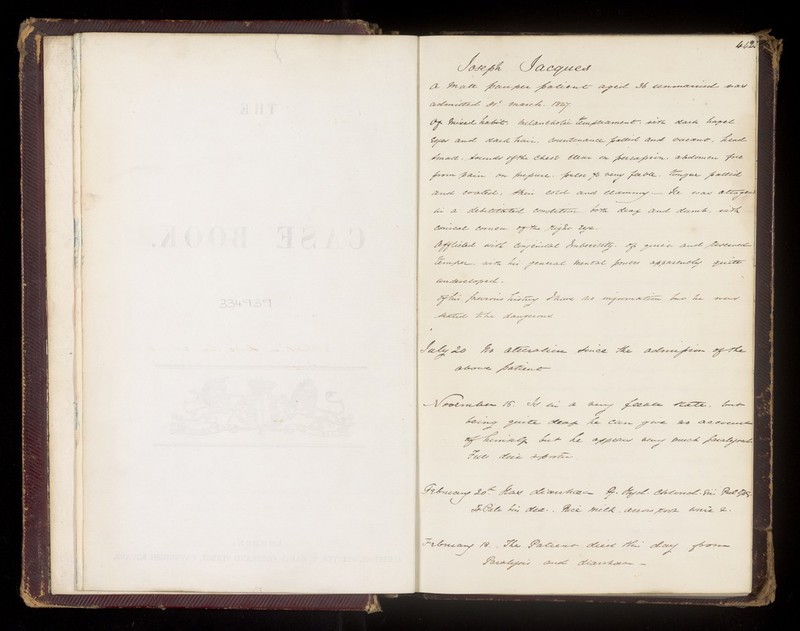 THE
CASE BOOK.
334939
Joseph Jacques
A Male pauper patient aged 36 unmarried was
admitted March 1847
Of Mixed habit. Melancholic temperament with dark hazel
eyes and dark hair. Countenance pallid and vacant, head
small. Sounds of the Chest clear on percussion abdomen free
from pain on pressure. pulse very feeble. tongue pallid
and coated. Skin cold and clammy — He was
in a debilitated condition both deaf and dumb. with
conical cornea of the right eye.
Afflicted with Congenital Imbecility. of quiet and
temper. with his general Mental powers apparently quite
undeveloped.
Of his previous history I have no information but he was
stated to be dangerous
July 20 No alteration since the admission of the
above patient
November 15. Is in a very feeble state, but
being quite deaf he can give no account
of himself but he appears very much paralysed
Full diet & porter
February 20th Has diarrhœa
bis die. Rice Milk. arrow root wine &.
February 18. The Patient died this day from
Paralysis and diarrhœa —